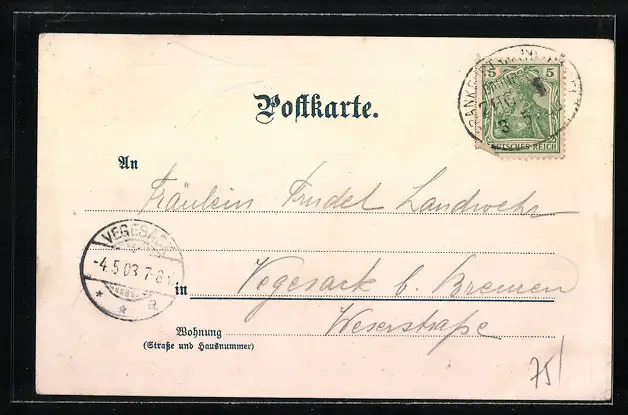 Postkarte.
5 5
DEUTSCHES REICH
3 5
An
Fräulein Trudel Landwehr
VEGESACK
-4.5.03 7-8V
* * a
in Vegesack b. Bremen
Wohnung Weserstraße
(Straße und Hausnummer)
75